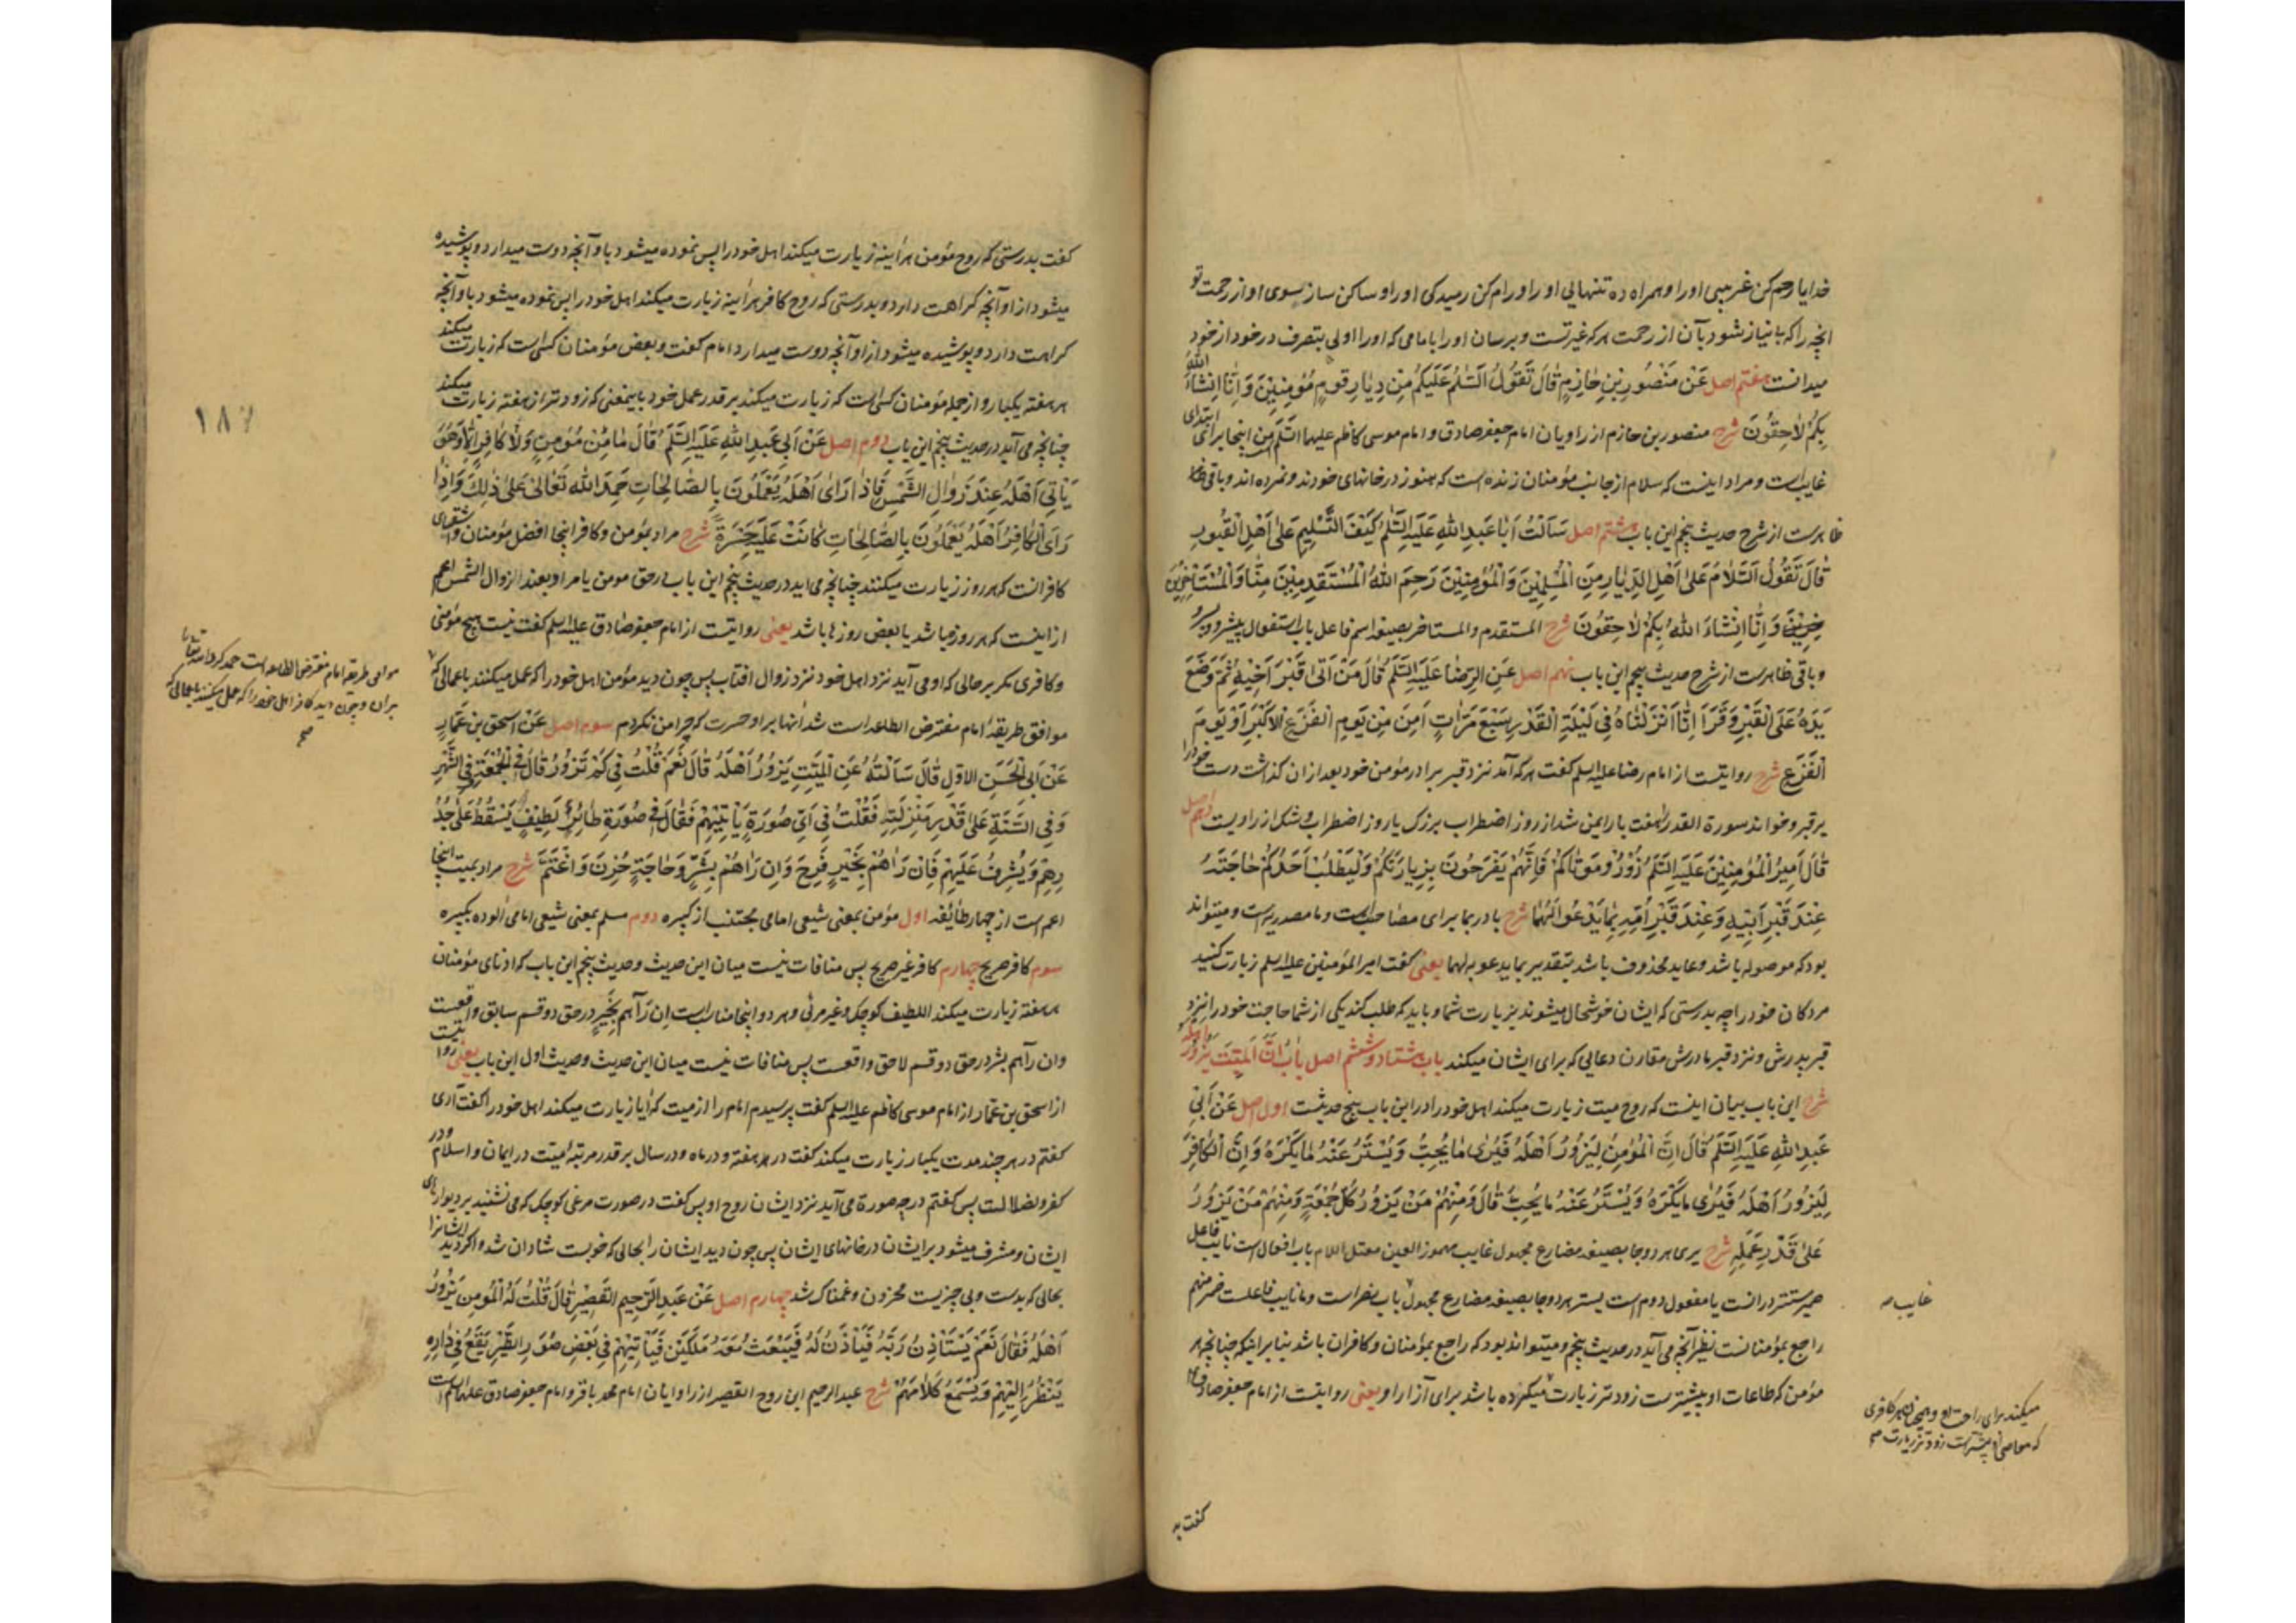 خدایا رحم کن غریبی اورا و همراه ده تنهایی اورا و رام کن رمیدکی اورا و ساکن ساز سوی او از رحمت تو
انچه را که بی نیاز شود بآن از رحمت هر که غیر تست و برسان اورا بامامی که اورا اولی بتصرف در خود از خود
میدانست هفتم اصل عَنْ مَنْصُورِ بْنِ حَازِمٍ قَالَ تَقُولُ السَّلَمُ عَلَيْكُمْ مِن دِيَارِ قَومٍ مُؤمِنِيْنَ وَاِنَّا اِنشَاءَ اللهُ
بِكُمْ لَاحِقُونَ شرح منصور بن حازم از راویان امام جعفر صادق و امام موسی کاظم علیهما السّلم من اینجا برای ابتدای
غایتست و مراد اینست که سلام از جانب مؤمنان زنده است که هنوز در خانهای خودند و نمرده اند و باقی
ظاهرست از شرح حدیث پنجم این باب هشتم اصل سَأَلْتُ اَبَا عَبدِ اللهِ عَلَيْهِ السَّلَمُ كَيْفَ التَّسْلِيمُ عَلَى اَهْلِ الْقُبُورِ
قَالَ تَقُولُ السَّلَامُ عَلَى اَهْلِ الدِّيَارِ مِنَ الْمُسْلِمِيْنَ وَالْمُؤمِنِيْنَ رَحِمَ اللهُ الْمُسْتَقْدِمِيْنَ مِنَّا وَالْمُسْتَاخِرِينَ
وَاِنَّا اِنشَاءَ اللهُ بِكُمْ لَاحِقُونَ شرح المستقدم والمستاخر بصیغه اسم فاعل باب استفعال پیشرو و پسرو
و باقی ظاهرست از شرح حدیث پنجم این باب نهم اصل عَنِ الرِّضَا عَلَيْهِ السَّلَمُ قَالَ مَنْ اَتَى قَبْرَ اَخِيْهِ ثُمَّ وَضَعَ
يَدَهُ عَلَى الْقَبْرِ وَقَرَأَ اِنَّا اَنْزَلْنَاهُ فِي لَيْلَةِ الْقَدْرِ سَبْعَ مَرَّاتٍ اَمِنَ مِنْ يَومِ الْفَزَعِ الْاَكْبَرِ اَوْ يَومَ
الْفَزَعِ شرح روایتست از امام رضا علیه السلم کفت هر که آمد نزد قبر برادر مؤمن خود بعد از ان کذاشت دست خودرا
بر قبر و خواند سورة القدر را هفت بار ایمن شد از روز اضطراب بزرک یا روز اضطراب و شک از راویت دهم اصل
قَالَ اَمِيرُ الْمُؤمِنِيْنَ عَلَيْهِ السَّلَمُ زُوْرُوْ مَوتَاكُمْ فَاِنَّهُمْ يَفْرَحُونَ بِزِيَارَتِكُمْ وَلْيَطْلُبْ اَحَدُكُمْ حَاجَتَهُ
عِنْدَ قَبْرِ اَبِيْهِ وَعِنْدَ قَبْرِ اُمِّهِ بِمَا يَدْعُوا لَهُمَا شرح با در بما برای مصاحبتست و ما مصدریه است و میتواند
بود که موصوله باشد و عاید محذوف باشد بتقدیر بما یدعو به لهما یعنی کفت امیر المؤمنین علیه السلم زیارت کنید
مردکان خود را چه بدرستی که ایشان خوشحال میشوند بزیارت شما و باید که طلب کند یکی از شما حاجت خود را نزد
قبر پدرش و نزد قبر مادرش مقارن دعایی که برای ایشان میکند باب هشتاد و ششم اصل بَابُ اَنَّ الْمَيِّتَ يَزُوْرُ اهله
شرح این باب بیان اینست که روح میت زیارت میکند اهل خود را در این باب پنج حدیثست اول اصل عَنْ اَبِي
عَبدِ اللهِ عَلَيْهِ السَّلَمُ قَالَ اِنَّ الْمُؤمِنَ لَيَزُورُ اَهْلَهُ فَيُرٰى مَا يُحِبُّ وَيُسْتَرُ عَنْهُ مَا يَكْرَهُ وَاِنَّ الْكَافِرَ
لَيَزُورُ اَهْلَهُ فَيُرٰى مَا يَكْرَهُ وَيُسْتَرُ عَنْهُ مَا يُحِبُّ قَالَ وَمِنْهُمْ مَنْ يَزُورُ كُلَّ جُمْعَةٍ وَمِنْهُمْ مَنْ يَزُورُ
عَلَى قَدْرِ عَمَلِهِ شرح یری هر دوجا بصیغه مضارع مجهول غایب مهموز العین معتل اللام باب افعال است نایب فاعل
ضمیر مستتر در انست یا مفعول دوم است یستر هر دوجا بصیغه مضارع مجهول باب نصر است و ما نایب فاعلست ضمیر منهم
راجع بمؤمنانست نظیر آنچه می آید در حدیث پنجم و میتواند بود که راجع بمؤمنان و کافران باشد بنا بر اینکه چنانچه هر
مؤمن که طاعات او بیشترست زودتر زیارت میکرده باشد برای آزار او یعنی روایتست از امام جعفر صادق
غایب
میکند برای راحت او و همچنان هر کافری
که معاصی او بیشترست زودتر زیارت صح
کفت بد
کفت بدرستی که روح مؤمن هر اینه زیارت میکند اهل خود را پس نموده میشود باو آنچه دوست میدارد و پوشیده
میشود از او آنچه کراهت دارد و بدرستی که روح کافر هر اینه زیارت میکند اهل خود را پس نموده میشود باو آنچه
کراهت دارد و پوشیده میشود از او آنچه دوست میدارد امام کفت و بعض مؤمنان کسی است که زیارت میکند
هر هفته یکبار و از جمله مؤمنان کسی است که زیارت میکند بر قدر عمل خود باینمعنی که زودتر از هفته زیارت میکند
چنانچه می آید در حدیث پنجم این باب دوم اصل عَنْ اَبِي عَبدِ اللهِ عَلَيْهِ السَّلَمُ قَالَ مَا مِنْ مُؤمِنٍ وَلَا كَافِرٍ اِلَّا وَهُوَ
يَأتِي اَهْلَهُ عِنْدَ زَوَالِ الشَّمْسِ فَاِذَا رَاَى اَهْلَهُ يَعْمَلُونَ بِالصَّالِحَاتِ حَمِدَ اللهَ تَعَالَى عَلَى ذٰلِكَ وَاِذَا
رَاَى الْكَافِرُ اَهْلَهُ يَعْمَلُونَ بِالصَّالِحَاتِ كَانَتْ عَلَيْهِ حَسْرَةً شرح مراد بمؤمن و کافر اینجا افضل مؤمنان و اشقیای
کافرانست که هر روز زیارت میکنند چنانچه می اید در حدیث پنجم این باب در حق مومن یا مراد بعند الزوال الشمس اعم
از اینست که هر روز باشد یا بعض روزها باشد یعنی روایتست از امام جعفر صادق علیه السلم کفت نیست هیچ مؤمنی
و کافری مکر بر حالی که او می آید نزد اهل خود نزد زوال افتاب پس چون دید مؤمن اهل خود را که عمل میکنند باعمالی که
موافق طریقه امام مفترض الطاعه است شد آنها بر او حسرت که چرا من نکردم سوم اصل عَنْ اسحق بن عَمَّارٍ
عَنْ اَبِي الْحَسَنِ الاوّلِ قَالَ سَاَلْتُهُ عَنِ الْمَيِّتِ يَزُورُ اَهْلَهُ قَالَ نَعَمْ قُلْتُ فِي كَمْ يَزُورُ قَالَ فِي الْجُمْعَةِ وَفِي الشَّهْرِ
وَفِي السَّنَةِ عَلَى قَدْرِ مَنْزِلَتِهِ فَقُلْتُ فِي اَيِّ صُورَةٍ يَأتِيْهِمْ فَقَالَ فِي صُورَةِ طَائِرٍ لَطِيْفٍ يَسْقُطُ عَلَى جُدُ
رِهِمْ وَيُشْرِفُ عَلَيْهِمْ فَاِنْ رَاٰهُمْ بِخَيْرٍ فَرِحَ وَاِن رَاٰهُمْ بِشَرٍّ وَحَاجَةٍ حُزِنَ وَاغْتَمَّ شرح مراد بمیت اینجا
اعم است از چهار طائفه اول مؤمن بمعنی شیعی امامی مجتنب از کبیره دوم مسلم بمعنی شیعی امامی آلوده بکبیره
سوم کافر صریح چهارم کافر غیر صریح پس منافات نیست میان این حدیث و حدیث پنجم این باب که ادنای مؤمنان
هر هفته زیارت میکند اللطیف کوچک و غیر مرئی و هر دو اینجا مناسبست اِن رَآهم بِخَیرٍ در حق دو قسم سابق واقعست
وان رآهم بشر در حق دو قسم لاحق واقعست پس منافات نیست میان این حدیث و حدیث اول این باب یعنی روایتست
از اسحق بن عمّار از امام موسی کاظم علیه السلم کفت پرسیدم امام را از میت که آیا زیارت میکند اهل خود را کفت آری
کفتم در هر چند مدت یکبار زیارت میکند کفت در هر هفته و در ماه و در سال بر قدر مرتبه میت در ایمان و اسلام و در
کفر و ضلالت پس کفتم در چه صورة می آید نزد ایشان روح او پس کفت در صورت مرغی کوچک که می نشیند بر دیوارهای
ایشان و مشرف میشود بر ایشان در خانهای ایشان پس چون دید ایشان را بحالی که خوبست شادان شد و اکر دید ایشانرا
بحالی که بدست و بی چیزیست محزون و غمناک شد چهارم اصل عَنْ عَبدِ الرَّحِيمِ الْقَصِيْرِ قَالَ قُلْتُ لَهُ الْمُؤمِنُ يَزُورُ
اَهْلَهُ فَقَالَ نَعَمْ يَسْتَأْذِنُ رَبَّهُ فَيَأْذَنُ لَهُ فَيَبْعَثُ مَعَهُ مَلَكَيْنِ فَيَأتِيْهِمْ فِي بَعْضِ صُوَرِ الطَّيْرِ يَقَعُ فِي دَارِهِ
يَنْظُرُ اِلَيْهِمْ وَيَسْمَعُ كَلَامَهُمْ شرح عبد الرحیم ابن روح القصیر از راویان امام محمد باقر و امام جعفر صادق علیهما السلم است
۱۸۷
موافق طریقه امام مفترض الطاعه است حمد کرد الله تعالی را
بران و چون دید کافر اهل خود را که عمل میکنند باعمالی که
صح